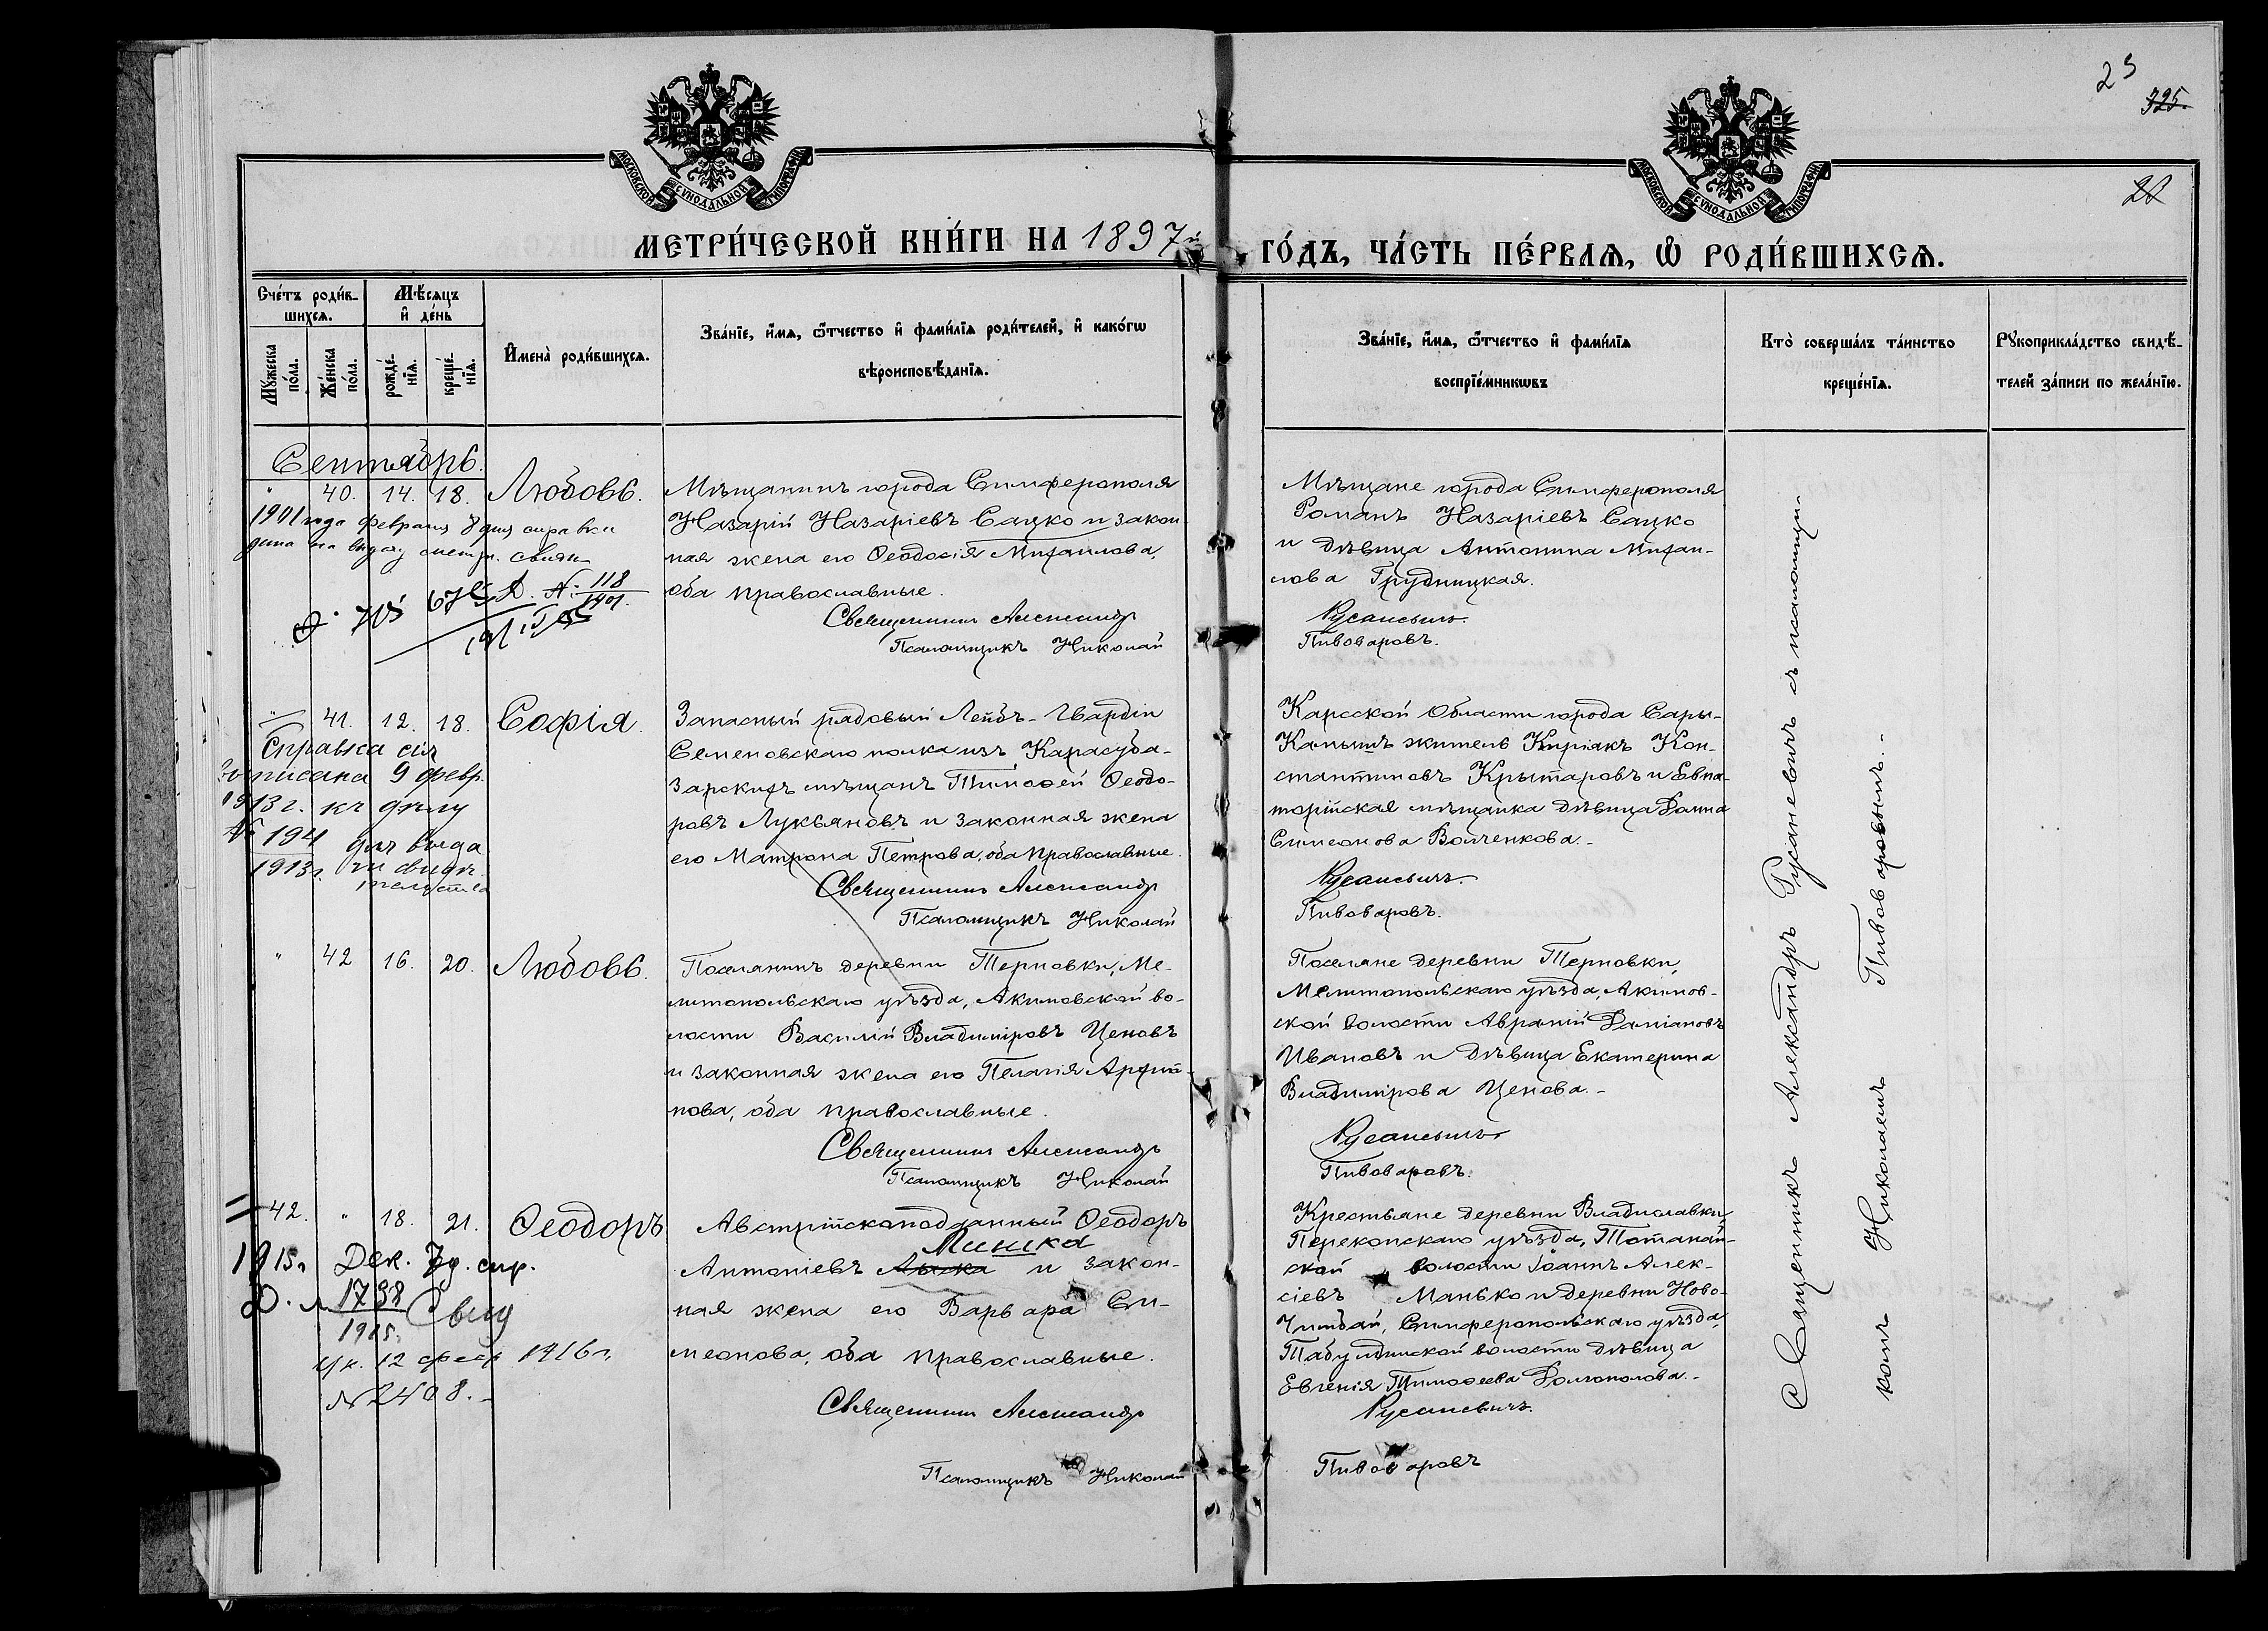 23
325.
22
МОСКОВСКОЙ СѴНОДАЛЬНОЙ ТИПОГРАФІИ
МОСКОВСКОЙ СѴНОДАЛЬНОЙ ТИПОГРАФІИ
МЕТРИ́ЧЕСКОЙ КНИ́ГИ НА 1897й ГО́ДЪ, ЧА́СТЬ ПЕ́РВАЯ, Ѿ РОДИ́ВШИХСЯ.
Сче́тъ роди́в-
шихся.
Мѣ́сяцъ
и҆ де́нь
Мꙋ́жеска
по́ла.
Же́нска
по́ла.
рожде́-
нїя.
креще́-
нїя.
И҆мена̀ роди́вшихся.
Зва́нїе, и҆́мя, ѻ҆́тчество и҆ фами́лїя роди́телей, и҆ како́гѡ
вѣроисповѣ́данїя.
Зва́нїе, и҆́мя, ѻ҆́тчество и҆ фами́лїя
воспрїе́мникѡвъ
Кто̀ соверша́лъ та́инство
креще́нїя.
Рꙋкоприкла́дство свидѣ́-
телей за́писи по жела́нїю.
Сентябрь.
" 40. 14. 18. Любовь.
Мѣщанинъ города Симферополя
Назарій Назаріевъ Сацко и закон
ная жена его Ѳеодосія Михаилова,
оба православные.
Священникъ Александръ
Псаломщикъ Николай
Мѣщане города Симферополя
Романъ Назаріевъ Сацко
и дѣвица Антонина Михаи-
лова Грудницкая.
Русаневичъ.
Пивоваровъ.
1901 года февраля 8 дня справка
дана на выдачу метр.
118
1901.
" 41. 12. 18. Софія.
Запасный рядовый Лейбъ-Гвардіи
Семеновскаго полка изъ Карасуба-
зарскихъ мѣщанъ Тимоѳей Ѳеодо-
ровъ Лукьяновъ и законная жена
его Матрона Петрова, оба православные.
Священникъ Александръ
Псаломщикъ Николай
Карсской Области города Сары-
Камышъ житель Киріакъ Кон-
стантиновъ Крытаровъ и Евпа-
торійская мѣщанка дѣвица Домна
Симеонова Волченкова.-
Русаневичъ.
Пивоваровъ.
Справка сія
записана 9 февр.
1913 г. къ дѣлу
№ 194
1913 г.
для выда
чи свидѣ-
тельства
" 42 16. 20. Любовь.
Поселянинъ деревни Терновки, Ме-
литопольскаго уѣзда, Акимовской во-
лости Василій Владиміровъ Ценовъ
и законная жена его Пелагія
нова, оба православные.
Священникъ Александръ
Псаломщикъ Николай
Поселяне деревни Терновки,
Мелитопольскаго уѣзда, Акимов-
ской волости Аврамій Даміановъ
Ивановъ и дѣвица Екатерина
Владимірова Ценова.-
Русаневичъ
Пивоваровъ.
42. " 18. 21. Ѳеодоръ
Австрійскоподданный Ѳеодоръ
Мишка
Антоніевъ и закон-
ная жена его Варвара Си-
меонова, оба православные.
Священникъ Александръ
Псаломщикъ Николай
Крестьяне деревни Владиславки,
Перекопскаго уѣзда, Тотанай-
ской волости Іоаннъ Алек-
сіевъ Манько и деревни Ново-
Чимбай, Симферопольскаго уѣзда,
Табулдинской волости дѣвица
Евгенія Тимоѳеева Долгополова.-
Русаневичъ.
Пивоваровъ
1915 г Дек. 7 д. спр.
1798
1915 г.
Свид
12 февр 1916 г.
№ 2408.-
Священникъ Александръ Русаневичъ съ псаломщи-
комъ Николаемъ Пивоваровымъ.-